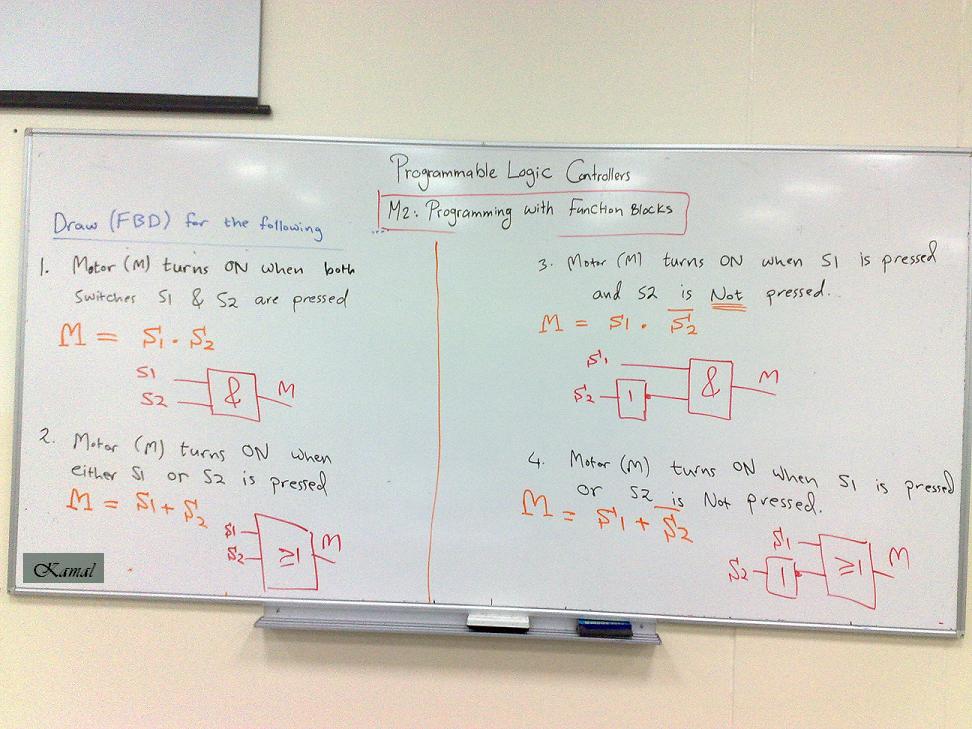 Programmable Logic Controllers
M2: Programming with Function Blocks
Draw (FBD) for the following
1. Motor (M) turns ON when both
switches S1 & S2 are pressed
M = S1 . S2
S1
S2
&
M
2. Motor (M) turns ON when
either S1 or S2 is pressed
M = S1 + S2
S1
S2
≥1
M
3. Motor (M) turns ON when S1 is pressed
and S2 is Not pressed.
M = S1 . S̅2̅
S1
S2
1
&
M
4. Motor (M) turns ON when S1 is pressed
or S2 is Not pressed.
M = S1 + S̅2̅
S1
S2
1
≥1
M
Kamal